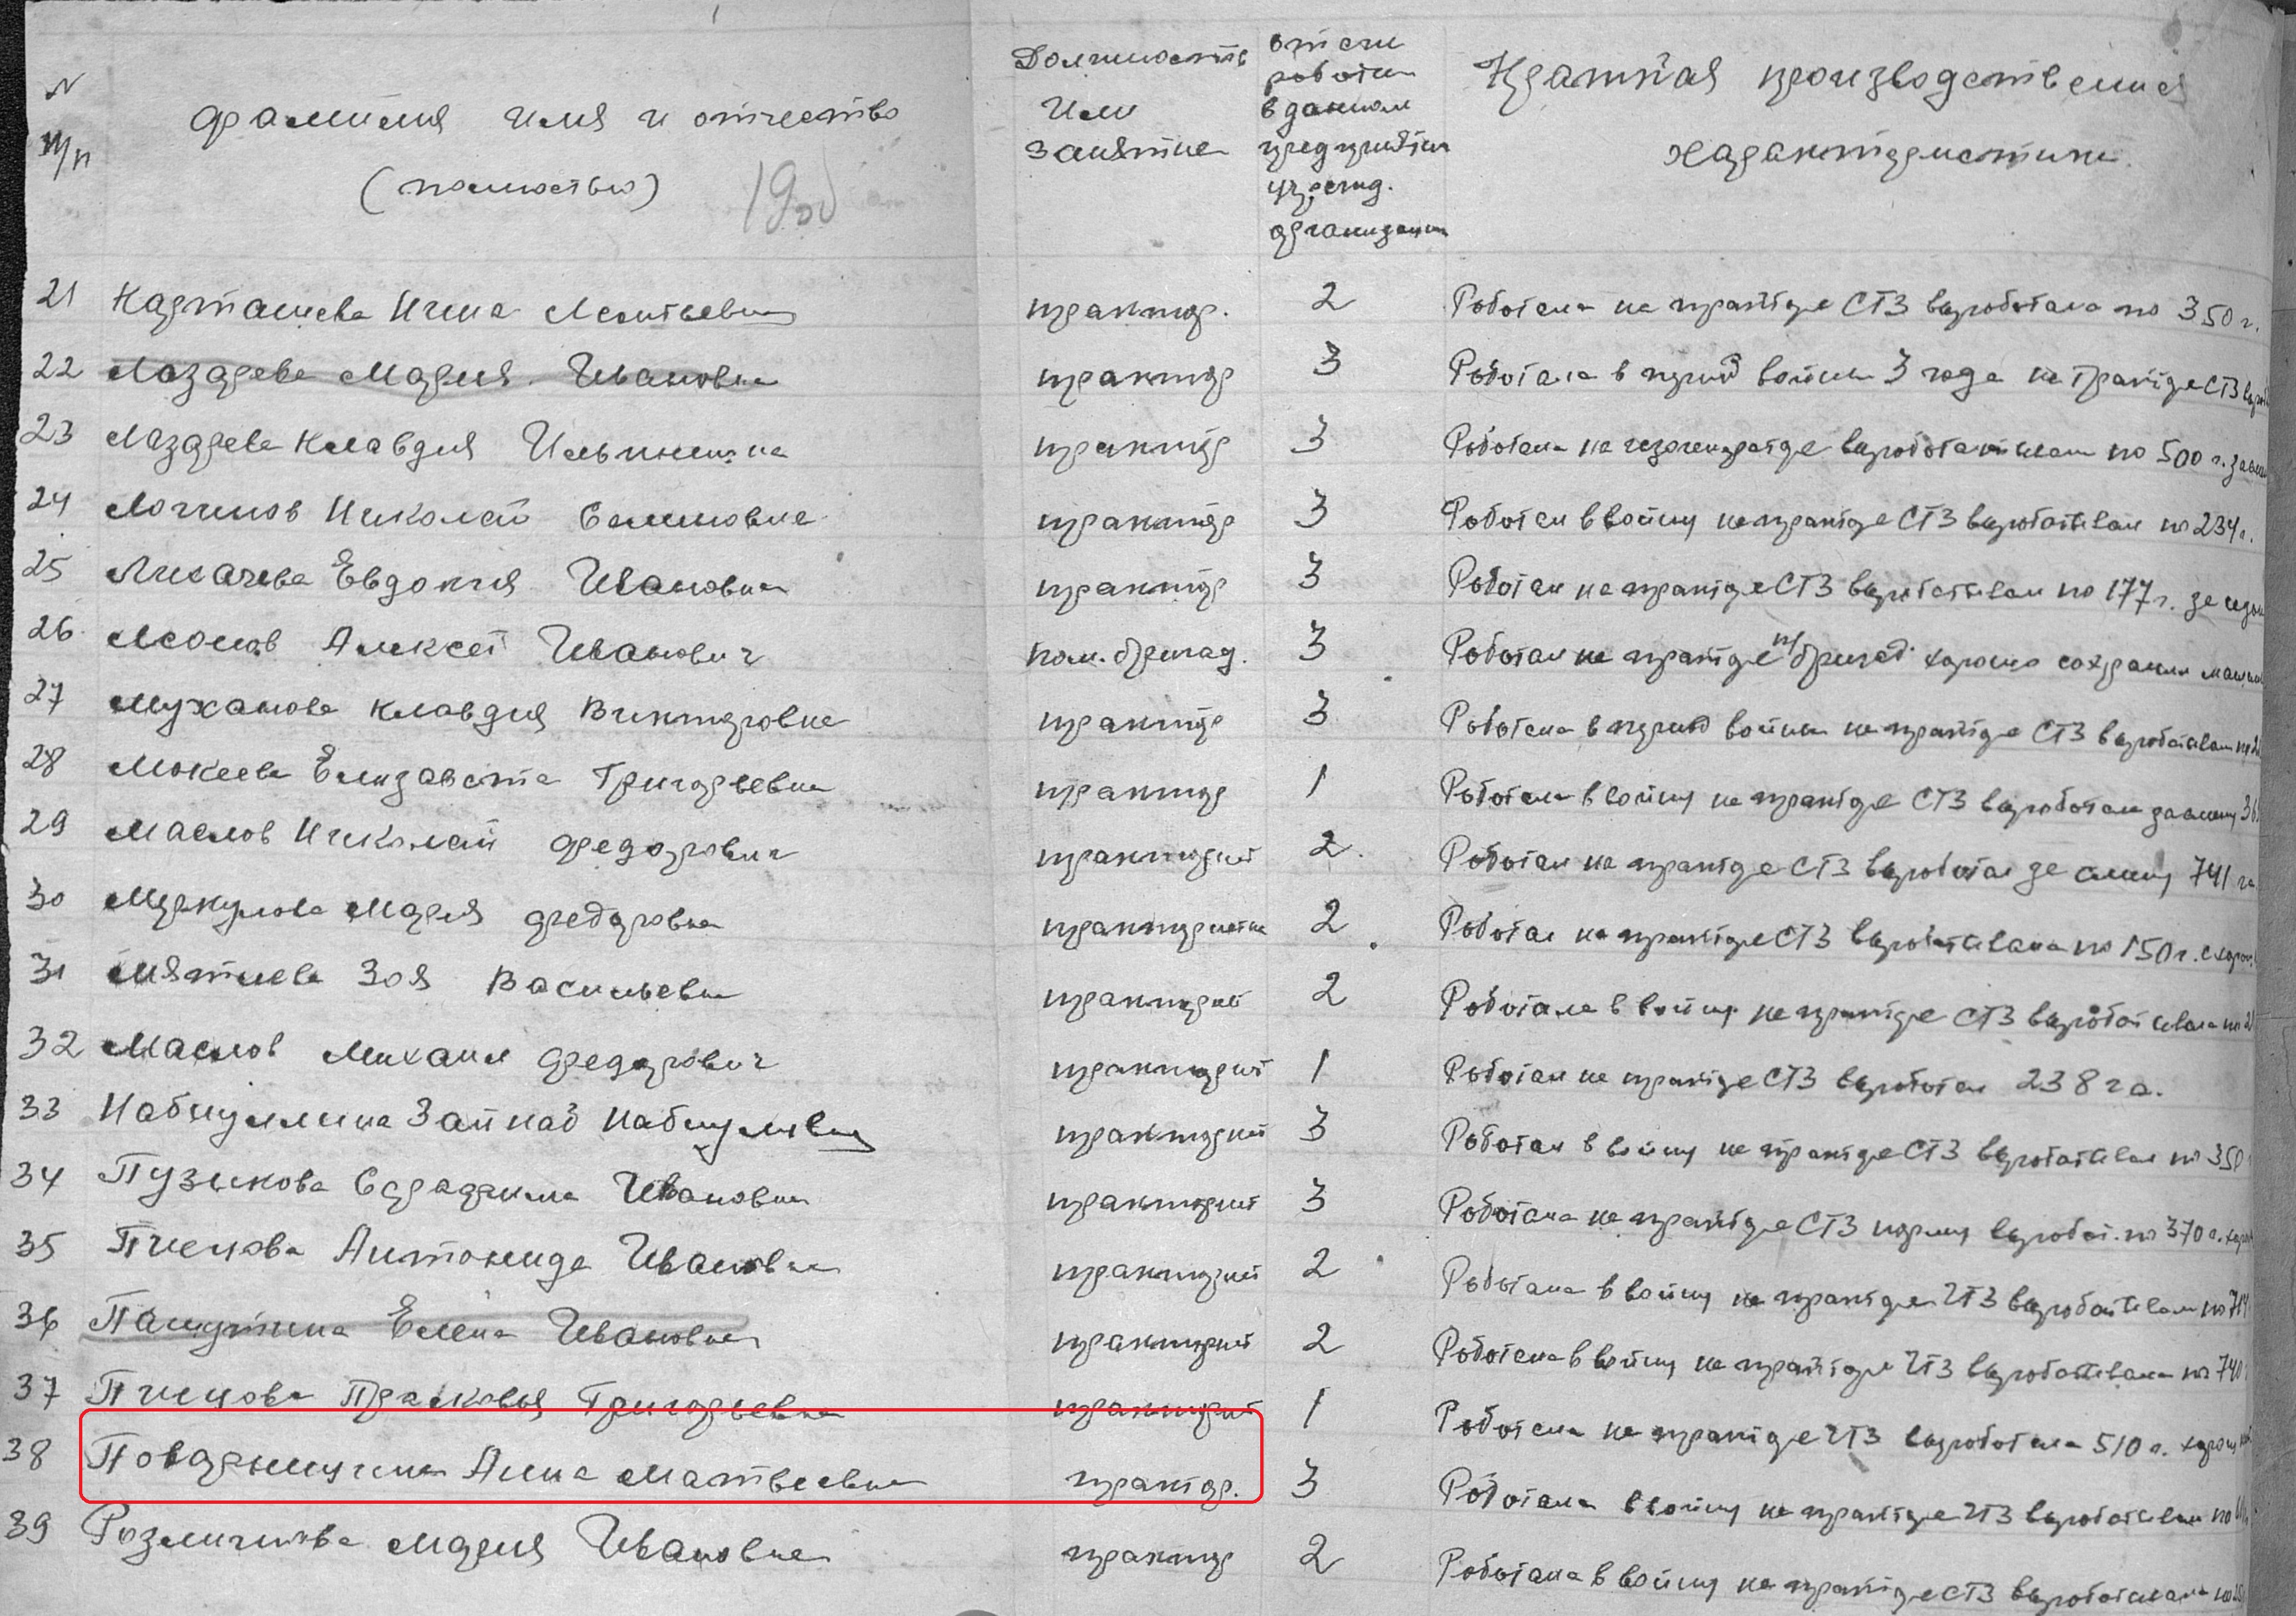 N п/п
Фамилия имя и отчество
(полностью)
Должность
или
занятие
работы
в данном
предприятии
учрежд.
организации
Краткая производственная
характеристика.
21 Карташева Нина Леонтьевна трактор. 2 Работала на тракторе СТЗ выработала по 350 г.
22 Лазарева Мария Ивановна трактор 3 Работала в период войны 3 года на тракторе СТЗ
23 Лазарева Клавдия Ильинична трактор 3 Работала на газогенераторе вырабатывала по 500 г.
24 Логинов Николай трактор 3 Работал в войну на тракторе СТЗ вырабатывал по 234 г.
25 Лихачева Евдокия Ивановна трактор 3 Работал на тракторе СТЗ вырабатывал по 177 г. за сезон
26 Алексей Иванович пом. бригад. 3 Работал на тракторе п/бригад. хорошо сохранял
27 Муханова Клавдия Викторовна трактор 3 Работала в период войны на тракторе СТЗ вырабатывал
28 Мокеева Елизавета Григорьевна трактор 1 Работала в войну на тракторе СТЗ выработала
29 Маслов Николай Федорович тракторист 2 Работал на тракторе СТЗ выработал за смену 741 га
30 Меркулова Мария Федоровна трактористка 2 Работал на тракторе СТЗ вырабатывала по 150 г.
31 Мятлева Зоя Васильевна тракторист 2 Работала в войну на тракторе СТЗ вырабатывала по
32 Маслов Михаил Федорович тракторист 1 Работал на тракторе СТЗ выработал 238 га.
33 Набиуллина Зайнаб тракторист 3 Работал в войну на тракторе СТЗ вырабатывал по 350
34 Пузыкова Ивановна тракторист 3 Работала на тракторе СТЗ норму выработ. по 370 г.
35 Пчелова Антонида Ивановна тракторист 2 Работала в войну на тракторе ЧТЗ вырабатывал по
36 Панютина Елена Ивановна тракторист 2 Работала в войну на тракторе ЧТЗ вырабатывала по 740
37 Пчелова Прасковья Григорьевна тракторист 1 Работала на тракторе ЧТЗ выработала 510 г.
38 Поварницина Анна Матвеевна трактор. 3 Работала в войну на тракторе ЧТЗ вырабатывал по
39 Мария Ивановна трактор 2 Работала в войну на тракторе СТЗ вырабатывала по